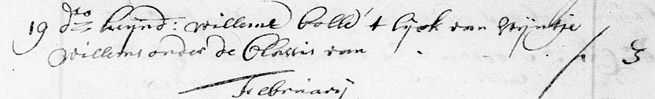 19 dito heijnd: willems bolle t lijck van Trijntje
willems onder de Classis van . . . 3
Februarij